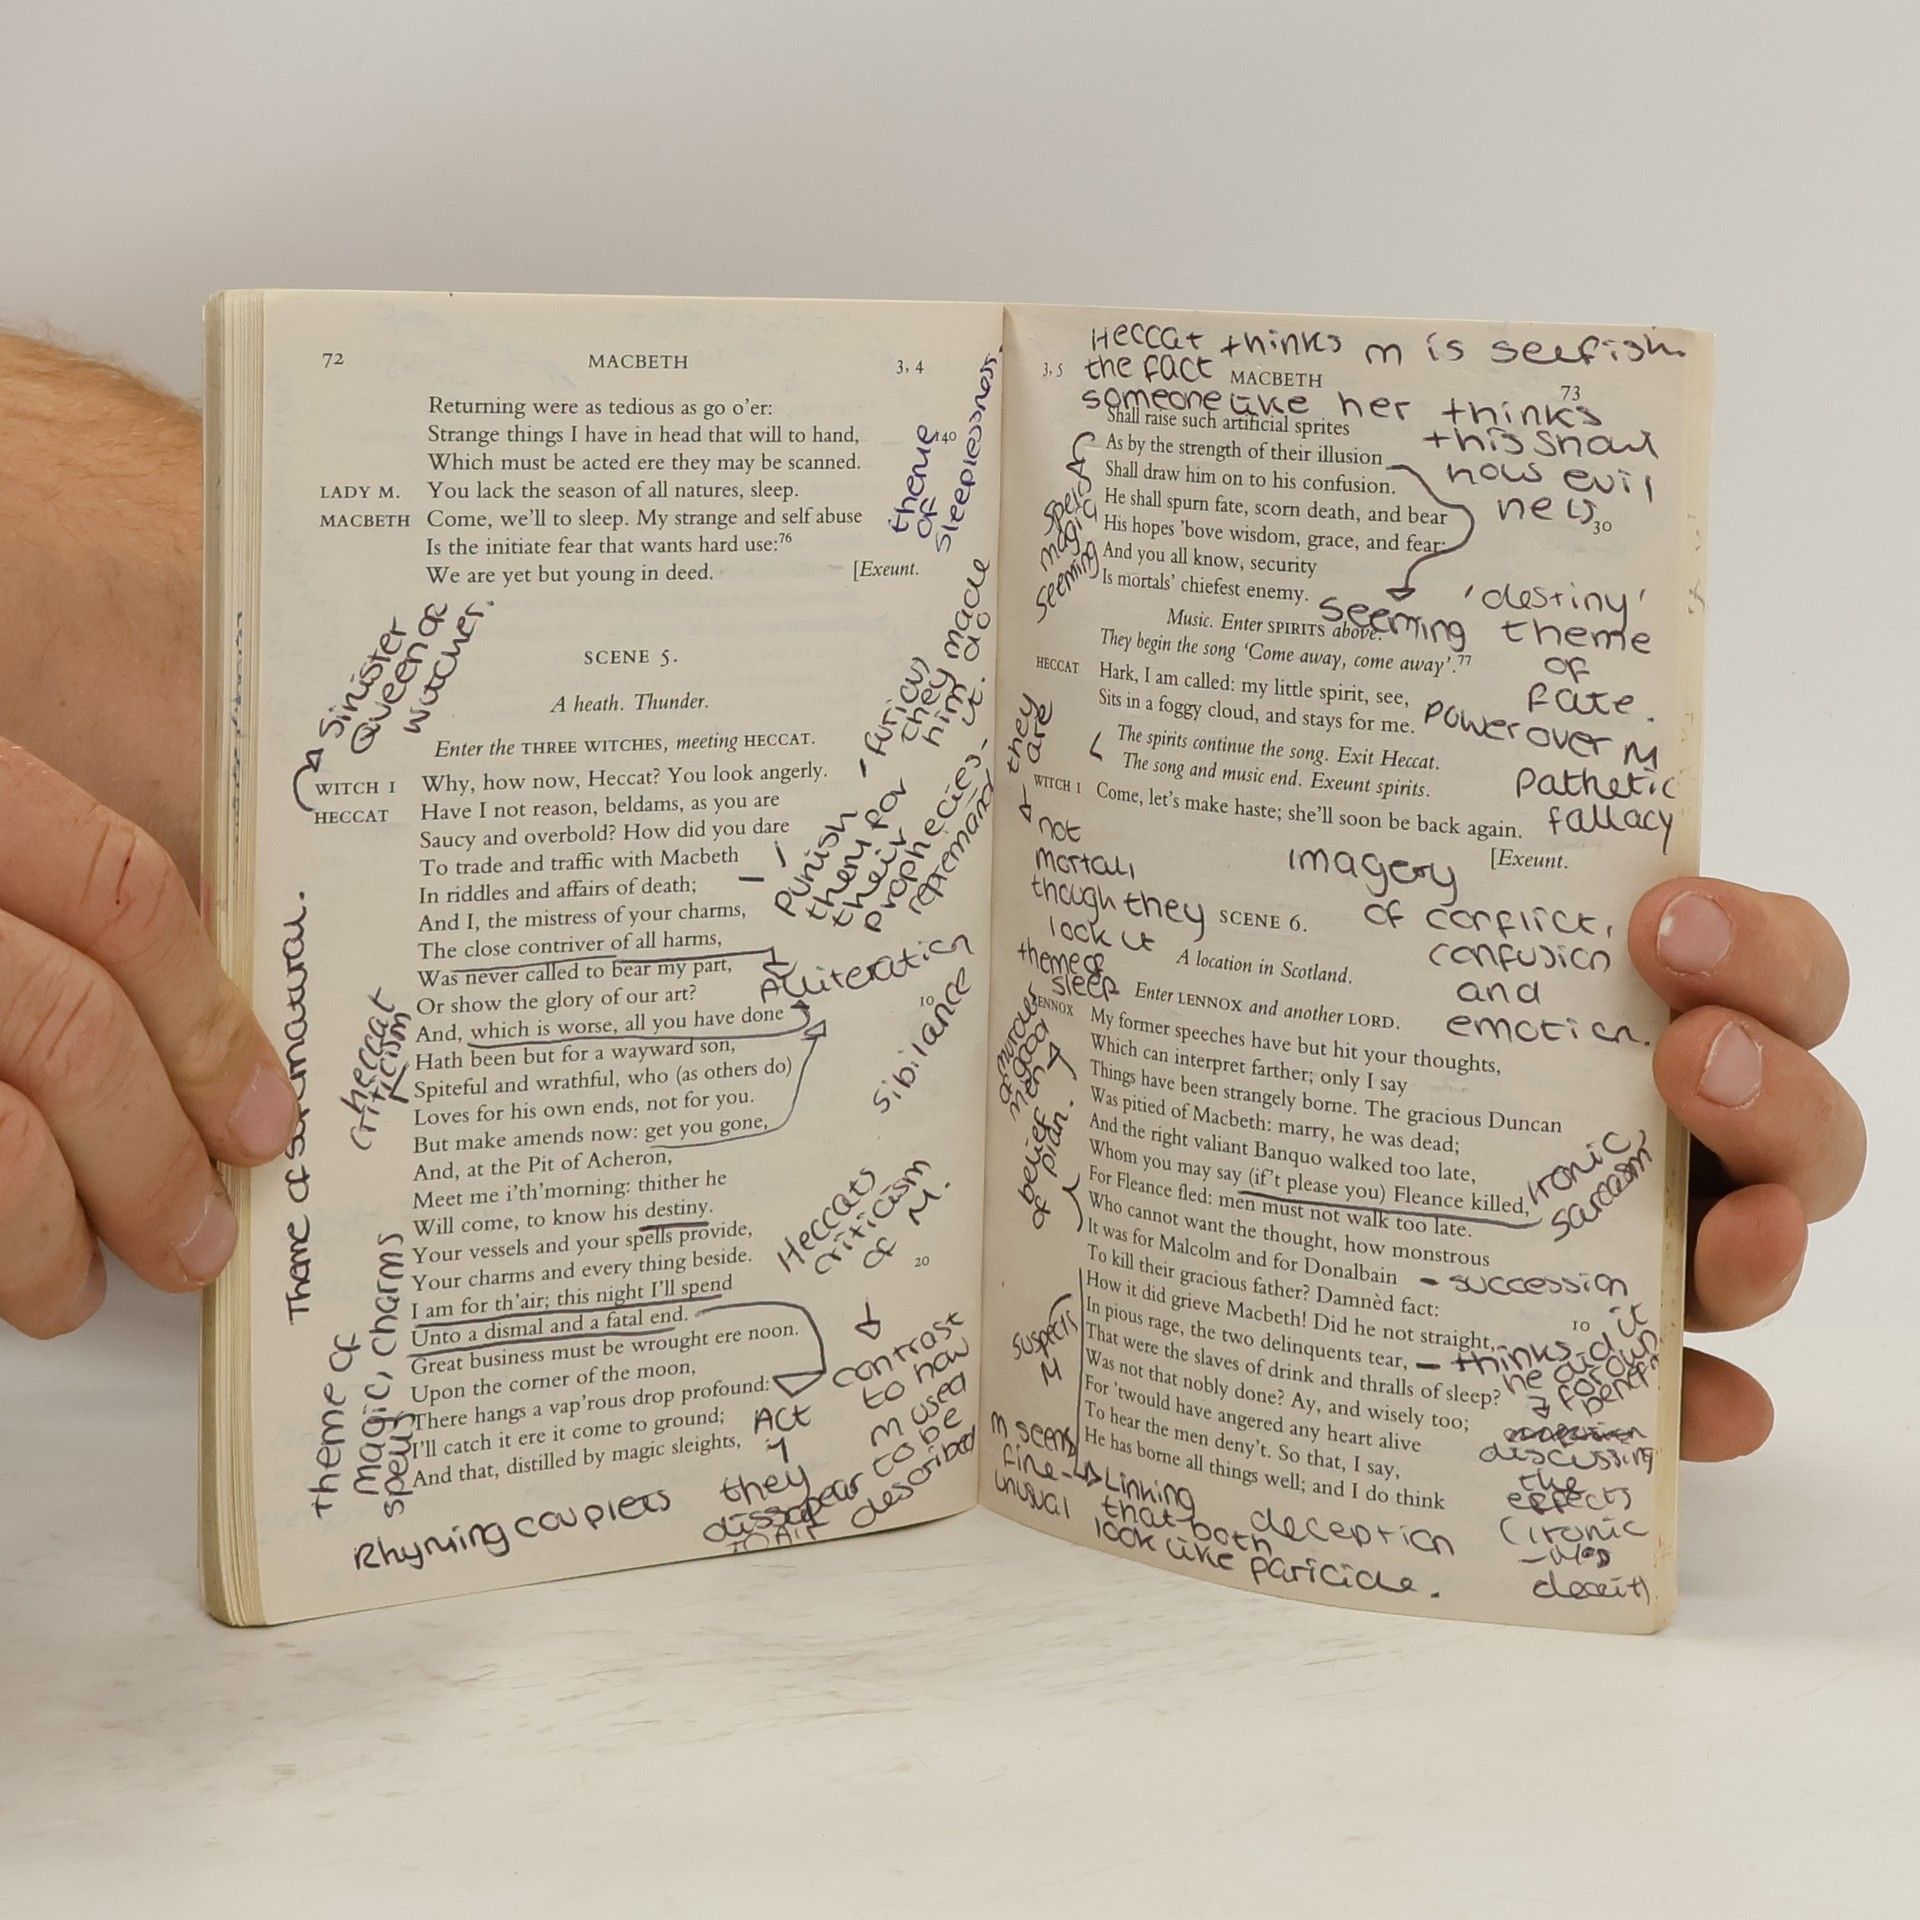 72 MACBETH 3, 4
Returning were as tedious as go o'er:
Strange things I have in head that will to hand, 140
Which must be acted ere they may be scanned.
LADY M. You lack the season of all natures, sleep.
MACBETH Come, we'll to sleep. My strange and self abuse
Is the initiate fear that wants hard use:76
We are yet but young in deed. [Exeunt.
theme
of
sleeplessness.
Sinister
Queen of
witches.
SCENE 5.
A heath. Thunder.
Enter the THREE WITCHES, meeting HECCAT.
WITCH 1 Why, how now, Heccat? You look angerly.
HECCAT Have I not reason, beldams, as you are
Saucy and overbold? How did you dare
To trade and traffic with Macbeth
In riddles and affairs of death;
And I, the mistress of your charms,
The close contriver of all harms,
Was never called to bear my part,
Or show the glory of our art? 10
And, which is worse, all you have done
Hath been but for a wayward son,
Spiteful and wrathful, who (as others do)
Loves for his own ends, not for you.
But make amends now: get you gone,
And, at the Pit of Acheron,
Meet me i'th'morning: thither he
Will come, to know his destiny.
Your vessels and your spells provide,
Your charms and every thing beside. 20
I am for th'air; this night I'll spend
Unto a dismal and a fatal end.
Great business must be wrought ere noon.
Upon the corner of the moon,
There hangs a vap'rous drop profound:
I'll catch it ere it come to ground;
And that, distilled by magic sleights,
- furious
they made
him do
it.
punish
them for
their
prophecies -
reprimand
Alliteration
sibilance
Theme of supernatural.
heccat
criticism
Heccats
criticism
of M.
theme of
magic, charms
spells
contrast
to how
M used
to be
described
ACT
1
they
dissapear
TO AIR
Rhyming couplets
Heccat thinks m is selfish.
the fact
someone like her thinks
this shows
how evil
he is
3, 5 MACBETH 73
Shall raise such artificial sprites
As by the strength of their illusion
Shall draw him on to his confusion.
He shall spurn fate, scorn death, and bear 30
His hopes 'bove wisdom, grace, and fear:
And you all know, security
Is mortals' chiefest enemy.
magic
seeming
seeming
'destiny'
theme
of
fate.
Music. Enter SPIRITS above.
They begin the song 'Come away, come away'.77
HECCAT Hark, I am called: my little spirit, see,
Sits in a foggy cloud, and stays for me.
The spirits continue the song. Exit Heccat.
The song and music end. Exeunt spirits.
WITCH 1 Come, let's make haste; she'll soon be back again.
[Exeunt.
power over M
pathetic
fallacy
they
are
not
mortal,
though they
look it
imagery
of conflict,
confusion
and
emotion.
SCENE 6.
A location in Scotland.
Enter LENNOX and another LORD.
LENNOX My former speeches have but hit your thoughts,
Which can interpret farther; only I say
Things have been strangely borne. The gracious Duncan
Was pitied of Macbeth: marry, he was dead;
And the right valiant Banquo walked too late,
Whom you may say (if't please you) Fleance killed,
For Fleance fled: men must not walk too late.
Who cannot want the thought, how monstrous
It was for Malcolm and for Donalbain
To kill their gracious father? Damnèd fact: 10
How it did grieve Macbeth! Did he not straight,
In pious rage, the two delinquents tear,
That were the slaves of drink and thralls of sleep?
Was not that nobly done? Ay, and wisely too;
For 'twould have angered any heart alive
To hear the men deny't. So that, I say,
He has borne all things well; and I do think
theme of
sleep
murder
good
men
of belief
of plan.
ironic
sarcasm
- succession
- thinks
he did it
for own
benefit
discussing
the
effects
(ironic
deceit)
suspects
M
M seems
fine -
unusual
Linking
that both
look like paricide.
deception